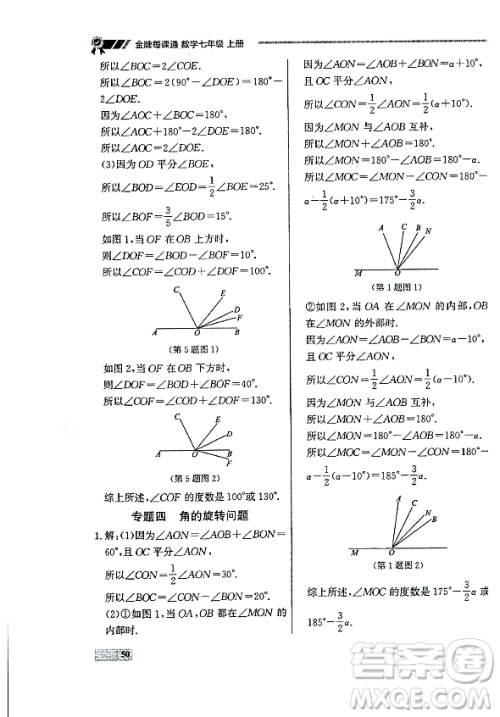 金牌每课通 数学七年级 上册
所以∠BOC=2∠DOE.
所以∠BOC=2(90°-∠DOE)=180°-
2∠DOE.
因为∠AOC+∠BOC=180°.
所以∠AOC=180°-2∠DOE.
所以∠AOC=2∠DOE.
(3)因为 OD 平分∠BOE,
所以∠BOD=∠EOD=1/2∠BOE=25°.
所以∠BOF=3/5∠BOD=15°.
如图 1,当 OF 在 OB 上方时,
则∠DOF=∠BOD-∠BOF=10°.
所以∠COF=∠COD+∠DOF=100°.
C
E
D
F
A
O
B
(第 5 题图 1)
如图 2,当 OF 在 OB 下方时,
则∠DOF=∠BOD+∠BOF=40°.
所以∠COF=∠COD+∠DOF=130°.
C
E
D
A
O
B
F
(第 5 题图 2)
综上所述,∠COF 的度数是 100°或 130°.
专题四 角的旋转问题
1.解:(1)因为∠AON=∠AOB+∠BON=
60°,且 OC 平分∠AON,
所以∠CON=1/2∠AON=30°.
(2)①如图 1,当 OA,OB 都在∠MON 的
内部时.
50
因为∠AON=∠AOB+∠BON=α+10°,
且 OC 平分∠AON,
所以∠CON=1/2∠AON=1/2(α+10°).
因为∠MON 与∠AOB 互补,
所以∠MON=180°-∠AOB=180°-α.
所以∠MOC=∠MON-∠CON=180°-
α-1/2(α+10°)=175°-3/2α.
A
C
B
N
M
O
(第 1 题图 1)
②如图 2,当 OA 在∠MON 的内部,OB
在∠MON 的外部时.
因为∠AON=∠AOB-∠BON=α-10°,
且 OC 平分∠AON,
所以∠CON=1/2∠AON=1/2(α-10°).
因为∠MON 与∠AOB 互补,
所以∠MON=180°-∠AOB=180°-α.
所以∠MOC=∠MON-∠CON=180°-
α-1/2(α-10°)=185°-3/2α.
C
N
B
M
O
(第 1 题图 2)
综上所述,∠MOC 的度数是175°-3/2α或
185°-3/2α.